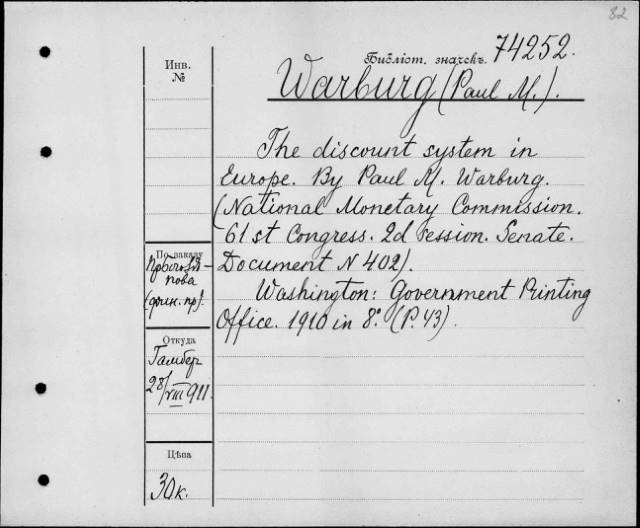 82
Библіот. значекъ 74252.
Инв.
№
Warburg (Paul M.).
The discount system in
Europe. By Paul M. Warburg.
(National Monetary Commission.
61 st Congress. 2d session. Senate.
Document N 402).
Washington: Government Printing
Office. 1910 in 8°. (P. 43).
По заказу
пова
(фин. пр).
Откуда
28/VIII 911.
Цѣна
30 к.